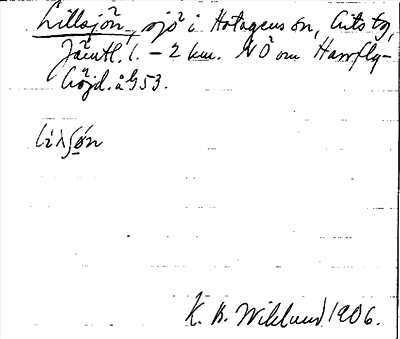 Lillsjön, sjö i Hotagens sn, Lits tg,
Jämtl. l. – 2 km. NÖ om Hamfly-
höjd. å G53.
liλʃøn
K. B. Wiklund 1906.